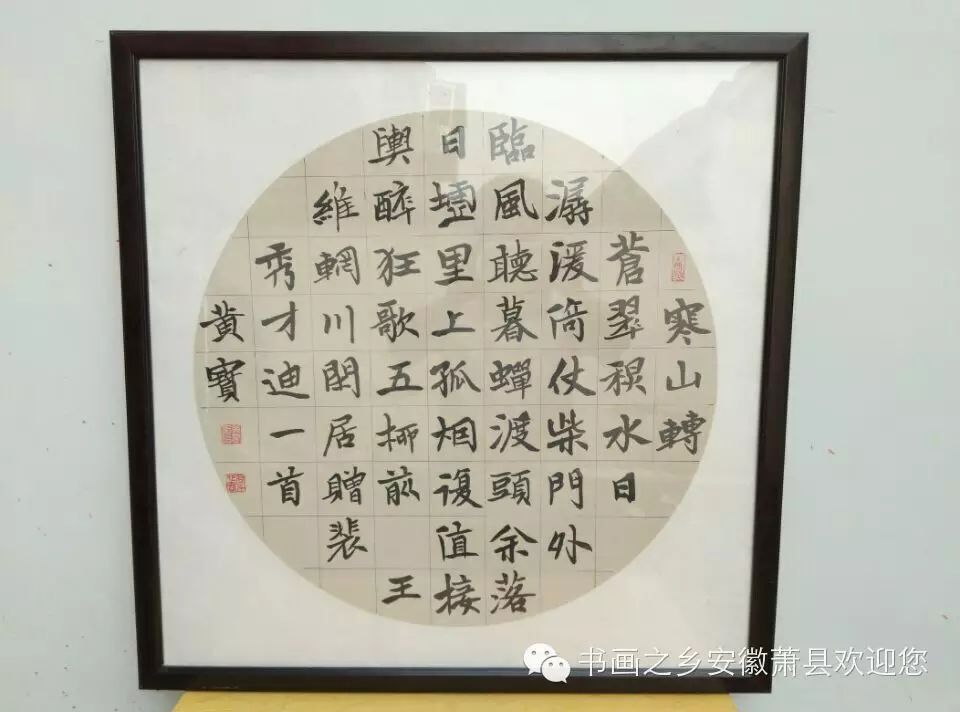 寒山轉
蒼翠積水日
潺湲倚仗柴門外
臨風聽暮蟬渡頭余落
日墟里上孤烟復值接
輿醉狂歌五柳前 王
維輞川閑居贈裴
秀才迪一首
黄寶
书画之乡安徽萧县欢迎您